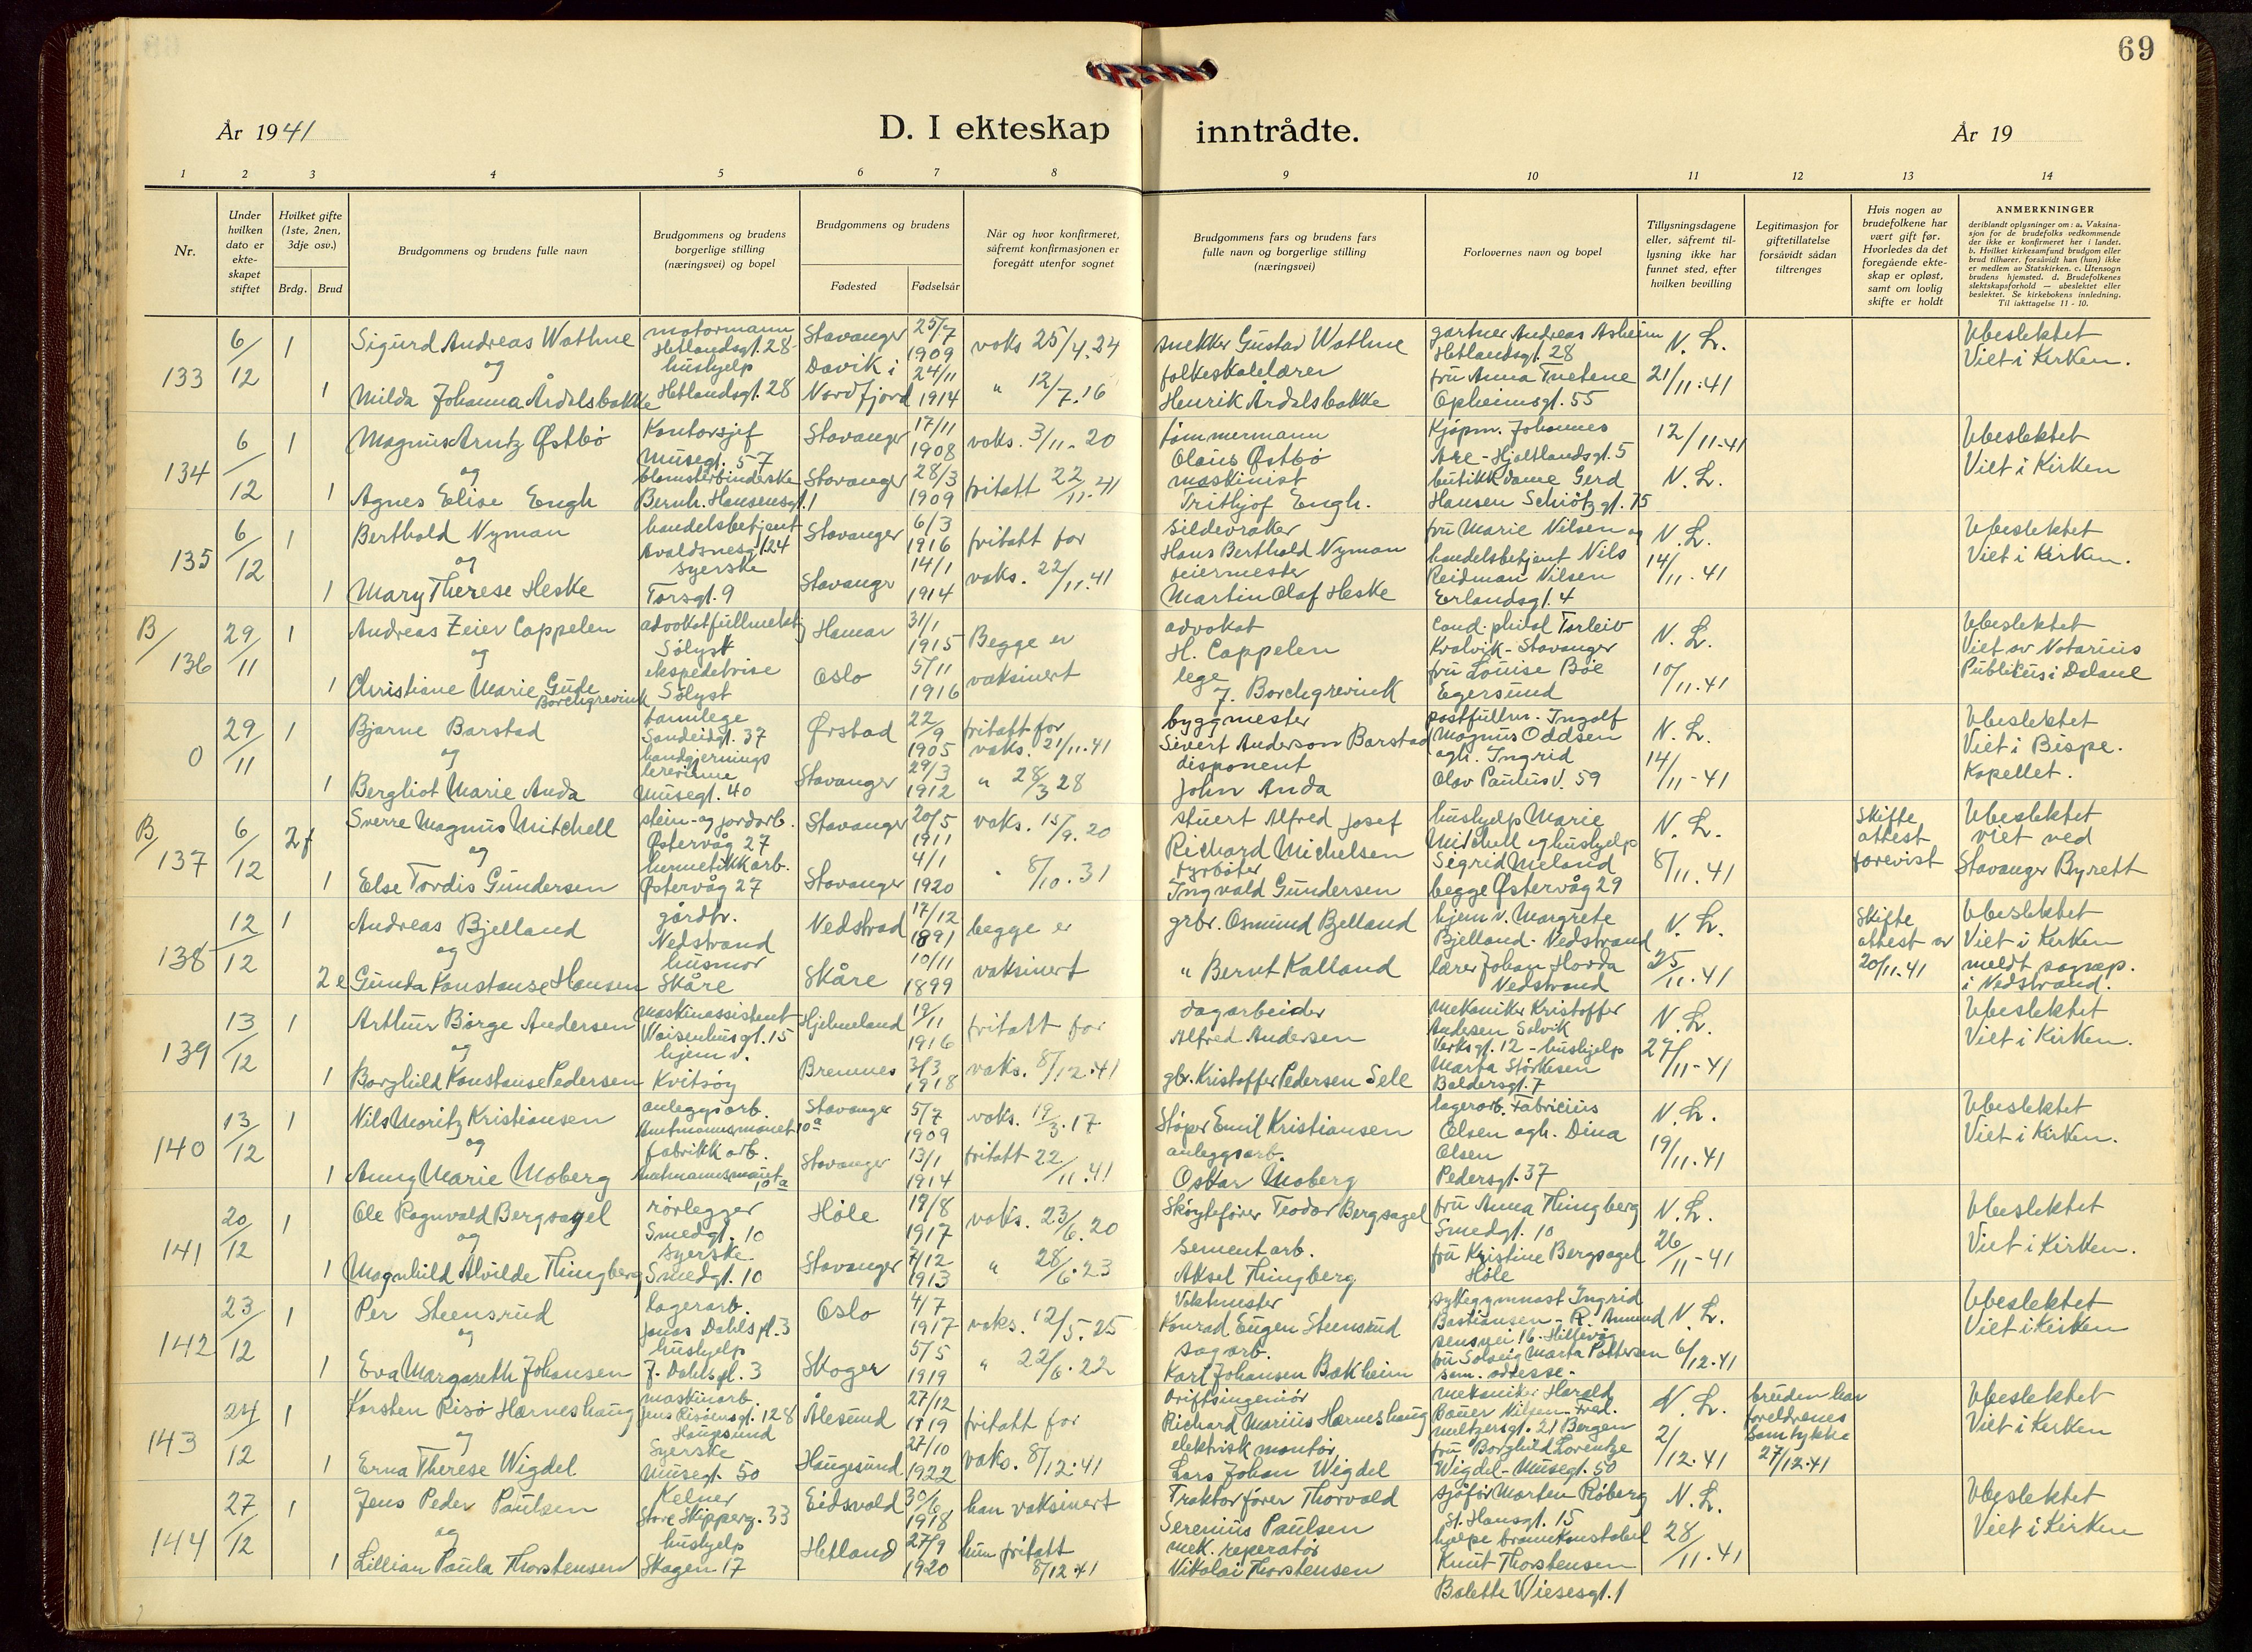 69
År 1941
D. I ekteskap inntrådte.
År 19
1 2 3 4 5 6 7 8 9 10 11 12 13 14
Nr.
Under hvilken dato er ekte- skapet stiftet
Hvilket gifte (1ste, 2nen, 3dje osv.)
Brdg. Brud
Brudgommens og brudens fulle navn
Brudgommens og brudens borgerlige stilling (næringsvei) og bopel
Brudgommens og brudens
Fødested
Fødselsår
Når og hvor konfirmeret, såfremt konfirmasjonen er foregått utenfor sognet
Brudgommens fars og brudens fars fulle navn og borgerlige stilling (næringsvei)
Forlovernes navn og bopel
Tillysningsdagene eller, såfremt til- lysning ikke har funnet sted, efter hvilken bevilling
Legitimasjon for giftetillatelse forsåvidt sådan tiltrenges
Hvis nogen av brudefolkene har vært gift før. Hvorledes da det foregående ekte- skap er opløst, samt om lovlig skifte er holdt
ANMERKNINGER
deriblandt oplysninger om: a. Vaksina- sjon for de brudefolks vedkommende der ikke er konfirmeret her i landet. b. Hvilket kirkesamfund brudgom eller brud tilhører, forsåvidt han (hun) ikke er medlem av Statskirken. c. Utensogn brudens hjemsted. d. Brudefolkenes slektskapsforhold — ubeslektet eller beslektet. Se kirkebokens innledning. Til iakttagelse 11 - 10.
133
6/12
1
Sigurd Andreas Wathne
og
1 Milda Johanna Årdalsbakke
motormann
Hetlandsgt. 28
hushjelp
Hetlandsgt. 28
Stavanger
Davik i
Nordfjord
25/7 1909
24/11 1914
vaks 25/4.24
" 12/7.16
snekker Gustav Wathne
folkeskolelærer
Henrik Årdalsbakke
gartner Andreas Asheim
Hetlandsgt. 28
fru Anna Tnetene
Opheimsgt. 55
N. L.
21/11.41
Ubeslektet
Viet i Kirken.
134
6/12
1
Magnus Arntz Østbø
og
1 Agnes Elise Engh
Kontorsjef
Musegt. 57
blomsterbinderske
Bernh. Hansensgt. 1
Stavanger
Stavanger
17/11 1908
28/3 1909
vaks. 3/11. 20
fritatt 22/11.41
tømmermann
Olaus Østbø
maskinist
Trithjof Engh.
Kjøpm. Johannes
Are - Hjaltlandsgt. 5
butikkdame Gerd
Hansen Schiøtz gt. 75
12/11.41
N. L.
Ubeslektet
Viet i Kirken
135
6/12
1
Berthold Nyman
og
1 Mary Therese Heske
handelsbetjent
Avaldsnesgt 24
syerske
Torsgt. 9
Stavanger
Stavangr
6/3 1916
14/1 1914
fritatt for
vaks. 22/11.41
sildevraker
Hans Berthold Nyman
feiermester
Martin Olaf Heske
fru Marie Nilsen og
handelsbetjent Nils
Reidman Nilsen
Erlandsgt. 4
N. L.
14/11.41
Ubeslektet
Viet i Kirken.
B/136
29/11
1
Andreas Zeier Cappelen
og
1 Christiane Marie Gude
Borchgrevink
advokatfullmektig
Sølyst
ekspedetrise
Sølyst
Hamar
Oslo
31/1 1915
5/11 1916
Begge er
vaksinert
advokat
H. Cappelen
lege
J. Borchgrevink
Cand. philol Torleiv
Kvalvik - Stavanger
fru Louise Bøe
Egersund
N. L.
10/11.41
Ubeslektet
Viet av Notarius
Publikus i Dalane
0
29/11
1
Bjarne Barstad
og
1 Bergliot Marie Anda
tannlege
Sandeidgt. 37
handgjernings
lererinne
Musegt. 40
Ørstad
Stavanger
22/9 1905
29/3 1912
fritatt for
vaks. 21/11.41
" 28/3 28
byggmester
Sivert Anderson Barstad
disponent
John Anda
postfullm. Ingolf
Magnus Oddsen
ogh. Ingrid
Olav Paulus V. 59
N. L.
14/11-41
Ubeslektet
Viet i Bispe.
Kapellet.
B/137
6/12
2f
Sverre Magnus Mitchell
og
1 Else Tordis Gundersen
stein- og jordarb.
Østervåg 27
hermetikkarb.
Østervåg 27
Stavanger
Stavanger
20/5 1911
4/1 1920
vaks. 15/9. 20
" 8/10. 31
stuert Alfred Josef
Richard Michelsen
fyrbøter
Ingvald Gundersen
hushjelp Marie
Mitchell og hushjelp
Sigrid Meland
begge Østervåg 29
N. L.
8/11.41
Skifte
attest
forevist
Ubeslektet
viet ved
Stavanger Byrett
138
12/12
1
Andreas Bjelland
og
2 e Gunda Konstanse Hansen
gårdbr.
Nedstrand
husmor
Skåre
Nedstrad
Skåre
17/12 1891
10/11 1899
begge er
vaksinert
grbr. Osmund Bjelland
" Bernt Kalland
hjem v. Margrete
Bjelland. Nedstrand
lærer Johan Hovda
Nedstrand
N. L.
25/11.41
Skifte
attest av
20/11.41
Ubeslektet
Viet i Kirken
meldt sognep.
i Nedstrand.
139
13/12
1
Arthur Børge Andersen
og
1 Borghild Konstanse Pedersen
maskinassistent
Waisenhusgt. 15
hjem v.
Kvitsøy
Hjelmeland
Bremnes
19/11 1916
3/3 1918
fritatt for
vaks. 8/12.41
dagarbeider
Alfred Andersen
gbr. Kristoffer Pedersen Sele
Mekaniker Kristoffer
Andersen Solvik
Verksgt. 12 - hushjelp
Marta Størkesen
Baldersgt. 7
N. L.
27/11-41
Ubeslektet
Viet i Kirken.
140
13/12
1
Nils Moritz Kristiansen
og
1 Anny Marie Moberg
anleggsarb.
Amtmannsmauet 10a
fabrikkarb.
Amtmannsmauet 10a
Stavanger
Stavanger
5/7 1909
13/1 1914
vaks. 19/3.17
fritatt 22/11.41
Støper Emil Kristiansen
anleggsarb.
Oskar Moberg
lagerarb. Fabricius
Olsen ogh. Dina
Olsen
Pedersgt. 37
N. L.
19/11.41
Ubeslektet
Viet i Kirken.
141
20/12
1
Ole Ragnvald Bergsagel
og
1 Magnhild Alvilde Thingberg
rørlegger
Smedgt. 10
syerske
Smedgt. 10
Høle
Stavanger
19/8 1917
7/12 1913
vaks. 23/6.20
" 28/6.23
Skøytefører Teodor Bergsagel
sementarb.
Aksel Thingberg
fru Anna Thingberg
Smedgt. 10
fru Kristine Bergsagel
Høle
N. L.
26/11-41
Ubeslektet
Viet i Kirken.
142
23/12
1
Per Steensrud
og
1 Eva Margareth Johansen
lagerarb.
Jonas Dahls pl. 3
hushjelp
J. Dahls pl. 3
Oslo
Skoger
4/7 1917
5/5 1919
vaks. 12/5.25
" 22/6.22
Vaktmester
Konrad Eugen Steensrud
sagarb.
Karl Johansen Bakheim
sykegymnast Ingrid
Bastiansen - R. Amund
sensvei 16. Hillevåg
fru Solveig Marta Pettersen
sam. adresse.
N. L.
6/12.41
Ubeslektet
Viet i Kirken
143
24/12
1
Karsten Risø Harneshaug
og
1 Erna Therese Wigdel
maskinarb.
Jens Risøensgt. 128
Haugesund
Syerske
Musegt. 50
Ålesund
Haugesund
27/12 1919
27/10 1922
fritatt for
vaks. 8/12.41
Driftsingeniør
Richard Marius Harneshaug
elektrisk montør
Lars Johan Wigdel
mekaniker Harald
Bauer Nilsen - Fred.
meltzersgt. 21 Bergen
fru Borghild Lorentze
Wigdel - Musegt. 50
N. L.
2/12.41
bruden har
foreldrenes
samtykke
27/12.41
Ubeslektet
Viet i Kirken
144
27/12
1
Jens Peder Paulsen
og
1 Lillian Paula Thorstensen
Kelner
Store Skipperg. 33
hushjelp
Skagen 17
Eidsvold
Hetland
30/6 1918
27/9 1920
han vaksinert
hun fritatt
8/12 41
Traktorfører Thorvald
Serenius Paulsen
mek. reperatør
Nikolai Thorstensen
sjåfør Morten Røberg
St. Hansgt. 15
hjelpe brannkonstabel
Knut Thorstensen
Bolette Wiesesgt. 1
N. L.
28/11.41
Ubeslektet
Viet i Kirken